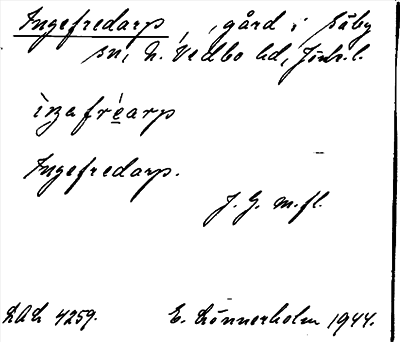 Ingefredarp, gård i Säby
sn, N. Vedbo hd, Jönk. l.
ìŋafréarp
Ingefredarp.
J. G. m. fl.
LAL 4259. E. Lönnerholm 1944.